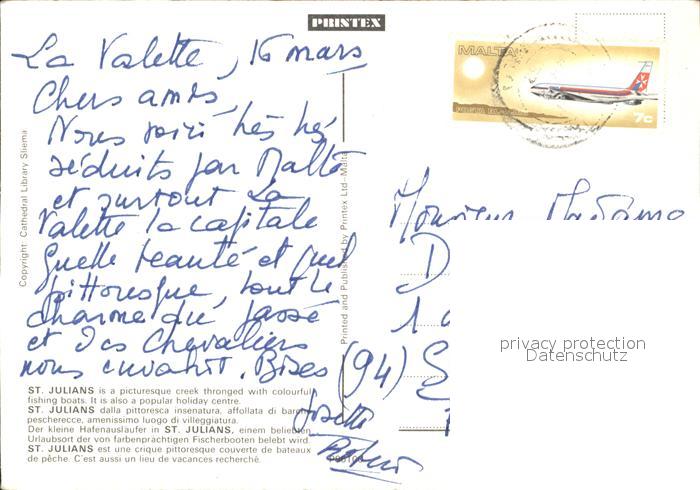 PRINTEX
La Valette, 16 mars
Chers amis,
Nous voici très très
séduits par Malte
et surtout La
Valette la capitale
Quelle beauté et quel
pittoresque, tout le
charme du passé
et des Chevaliers
nous envahit. Bises
Josette
MALTA
7c
Monsieur Madame
D
1
(94) S
privacy protection
Datenschutz
Copyright: Cathedral Library Sliema
Printed and Published by Printex Ltd-Malta
ST. JULIANS is a picturesque creek thronged with colourful
fishing boats. It is also a popular holiday centre.
ST. JULIANS dalla pittoresca insenatura, affollata di barche
pescherecce, amenissimo luogo di villeggiatura.
Der kleine Hafenausläufer in ST. JULIANS, einem beliebten
Urlaubsort der von farbenprächtigen Fischerbooten belebt wird.
ST. JULIANS est une crique pittoresque couverte de bateaux
de pêche. C'est aussi un lieu de vacances recherché.